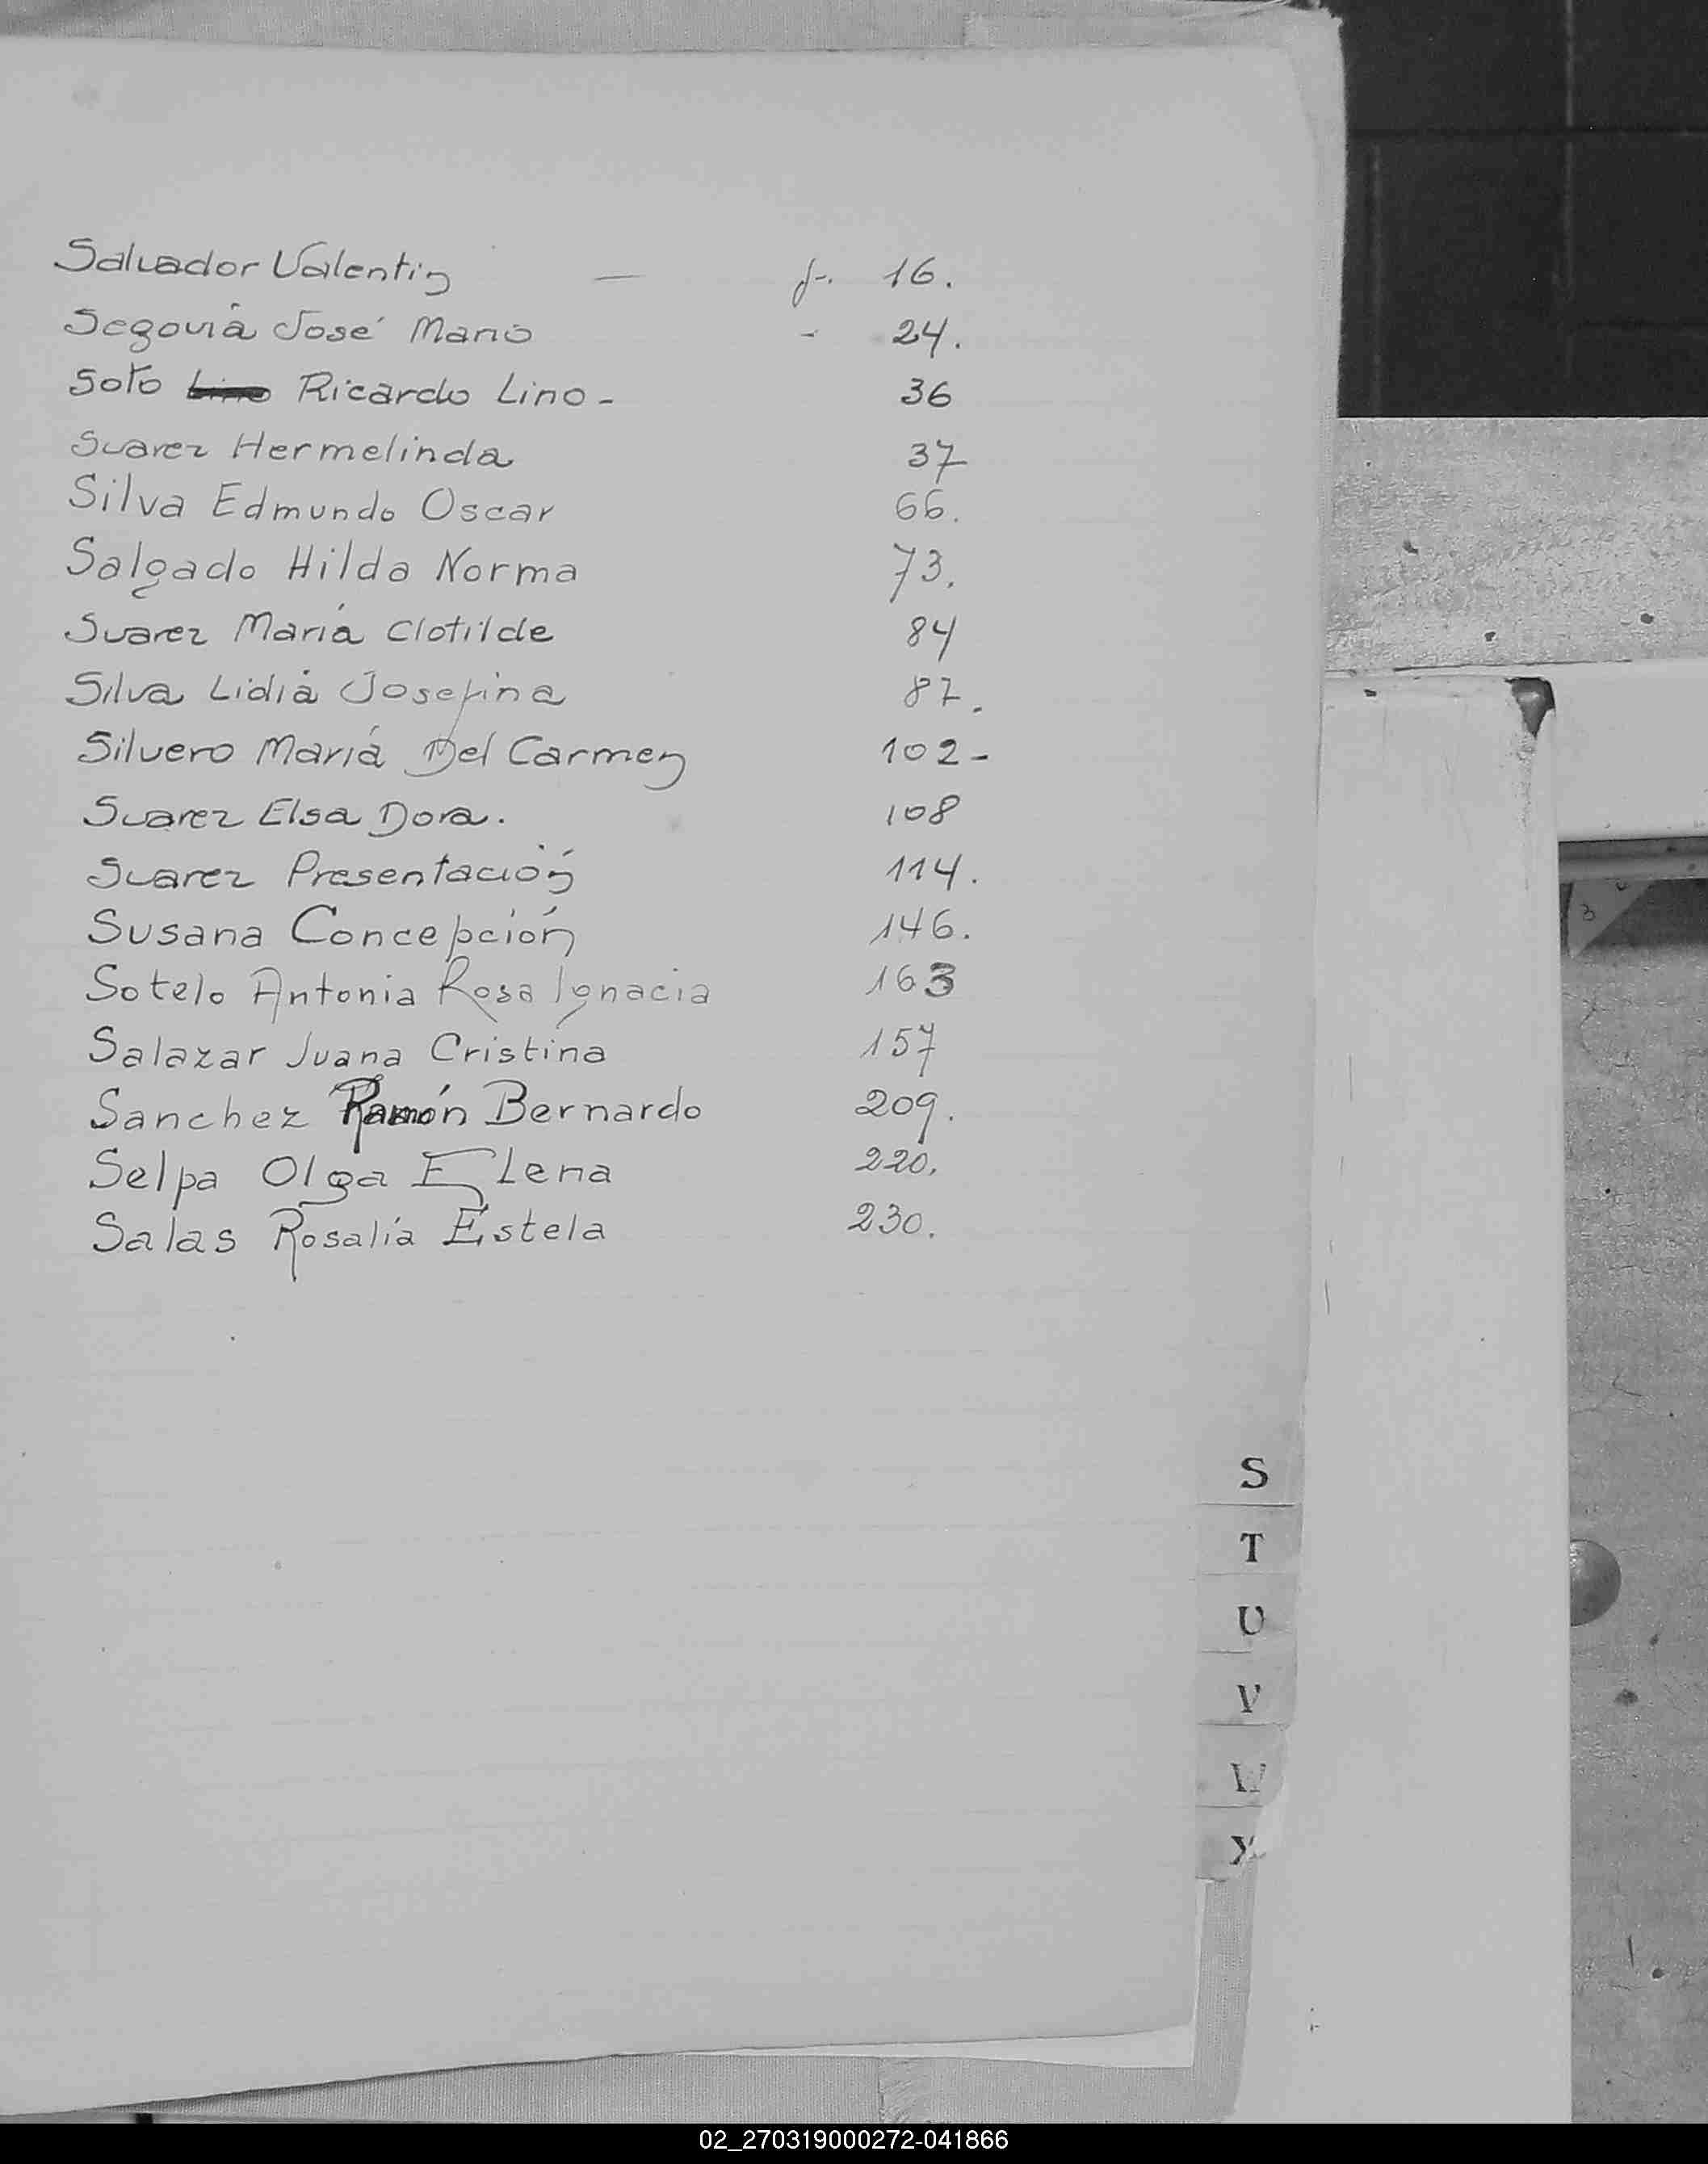 Salvador Valentin — f. 16.
Segovia José Mario - 24.
Soto Lino Ricardo Lino - 36
Suarez Hermelinda 37
Silva Edmundo Oscar 66.
Salgado Hilda Norma 73.
Suarez María Clotilde 84
Silva Lidia Josefina 87.
Silvero María Del Carmen 102-
Suarez Elsa Dora. 108
Suarez Presentación 114.
Susana Concepción 146.
Sotelo Antonia Rosa Ignacia 163
Salazar Juana Cristina 157
Sanchez Ramón Bernardo 209.
Selpa Olga Elena 220.
Salas Rosalía Estela 230.
3
S
T
U
V
W
X
02_270319000272-041866